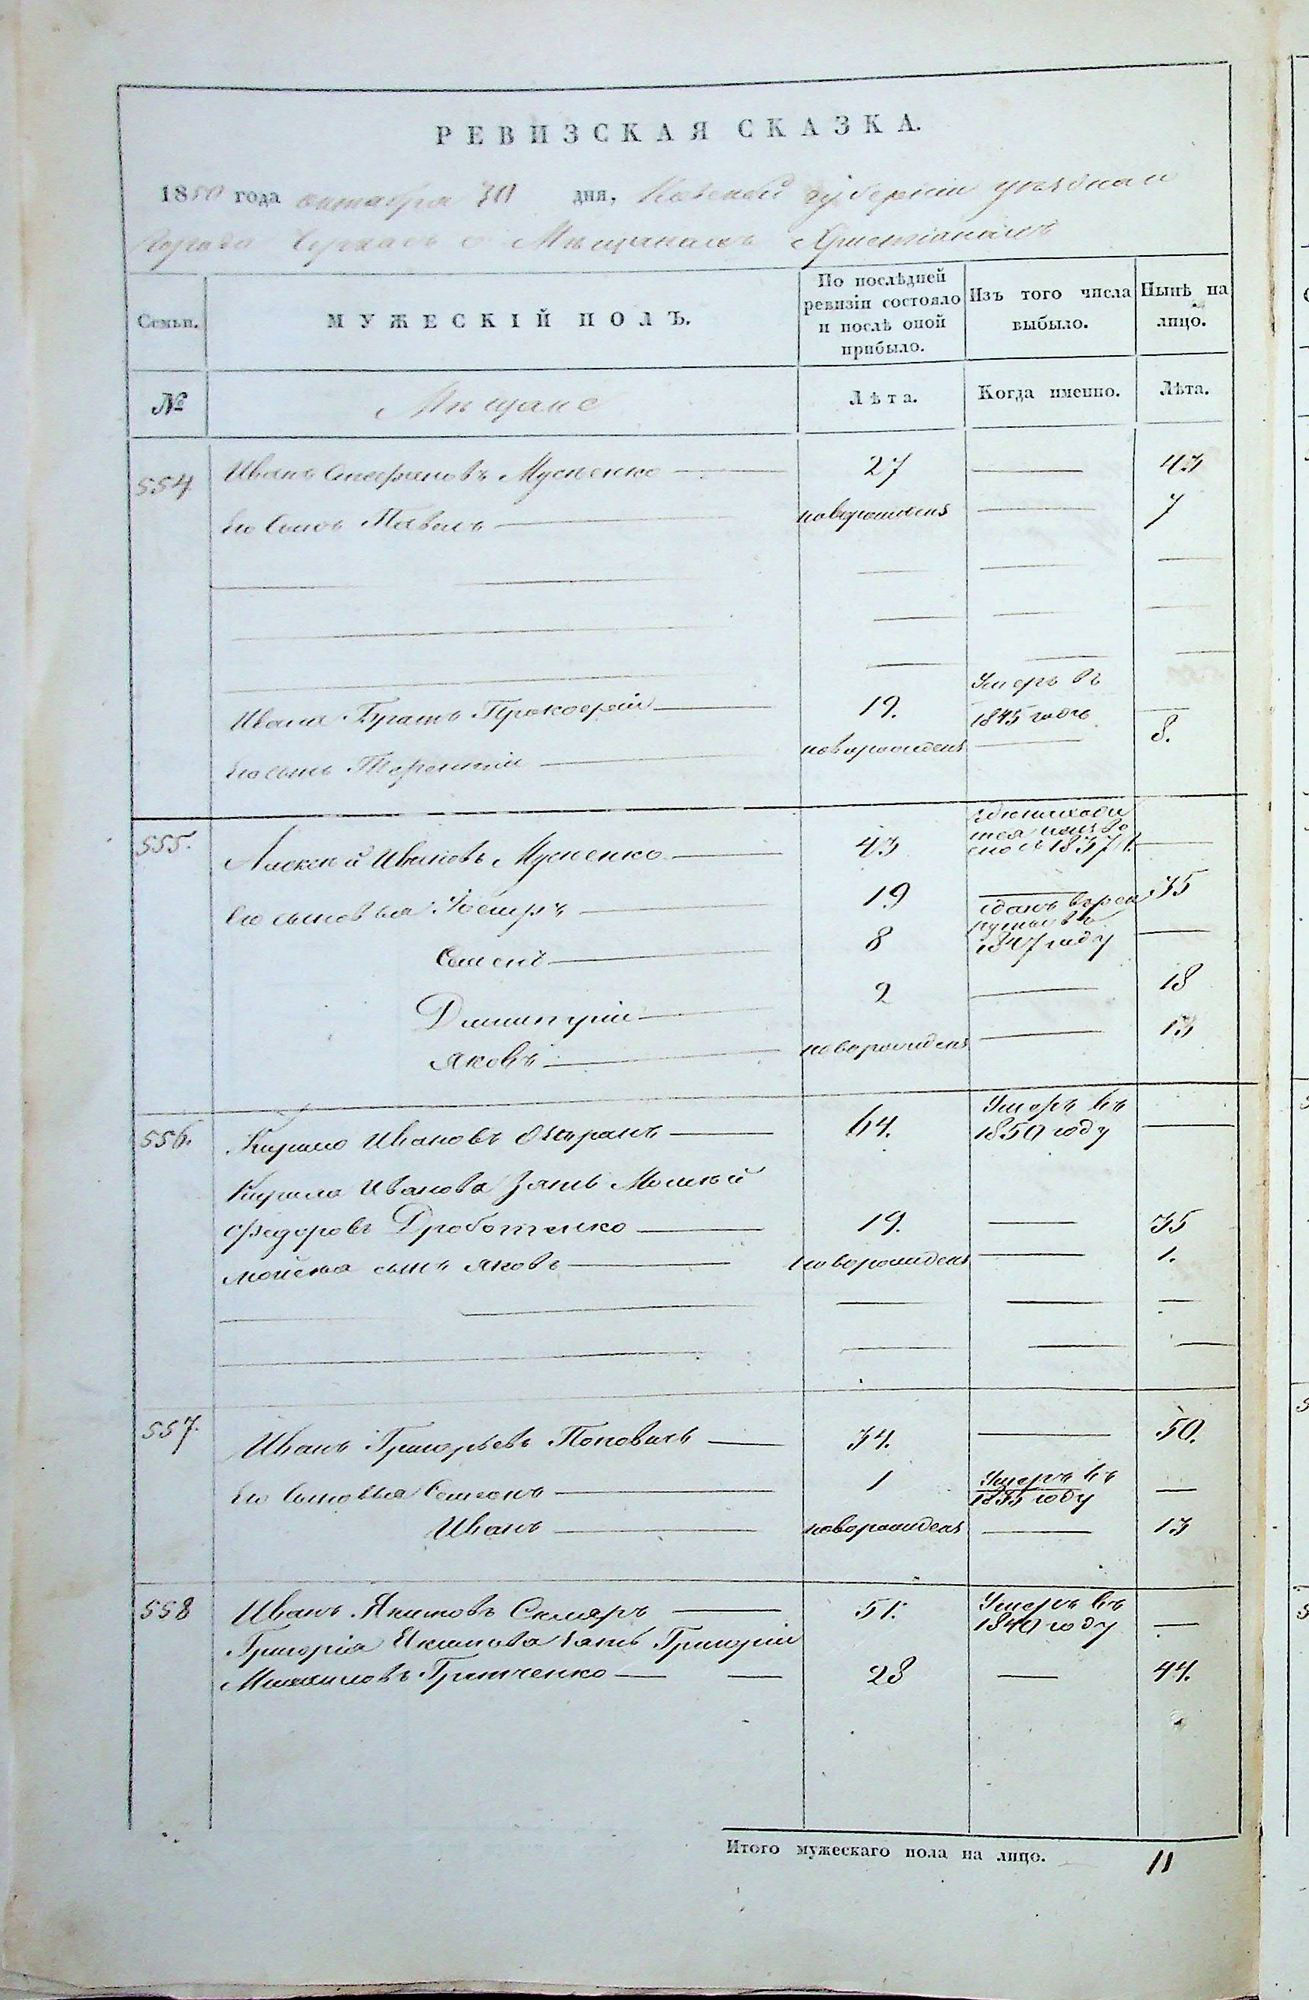 РЕВИЗСКАЯ СКАЗКА.
1850 года октября 30 дня, Кіевской губерніи уѣзднаго
города Черкасъ о Мѣщанахъ Христіанахъ
Семьи.
МУЖЕСКІЙ ПОЛЪ.
По послѣдней ревизіи состояло и послѣ оной прибыло.
Изъ того числа выбыло.
Нынѣ на лицо.
№ Мѣщане Лѣта. Когда именно. Лѣта.
554 Иванъ Стефановъ Мусненко — 27 — 43
Его Сынъ Павелъ — новорожденъ — 7
Умеръ въ
Ивана Братъ Прокофій — 19. 1845 годѣ —
Его сынъ Терентій — новорожденъ — 8.
555. Алексѣй Ивановъ Мусненко — 43 1837 —
Его сыновья — 19 — 35
сданъ въ рек
Семенъ — 8 1847 году —
Димитрій — 2 — 18
Яковъ — новорожденъ — 13
556. Кирило Ивановъ — 64. Умеръ въ 1850 году —
Кирила Иванова Зять Моисѣй
Федоровъ Дроботенко — 19. — 35
Моисѣя сынъ Яковъ — новорожденъ — 1.
557. Иванъ Григорьевъ Поповичъ — 34. — 50.
Его Сыновья Семенъ — 1 Умеръ въ 1835 году —
Иванъ — новорожденъ — 13
558 Иванъ Якимовъ Скляръ — 51. Умеръ въ 1840 году —
Григорія Якимова Зять Григорій
Михайловъ Гритченко — 28 — 44.
Итого мужескаго пола на лицо. 11